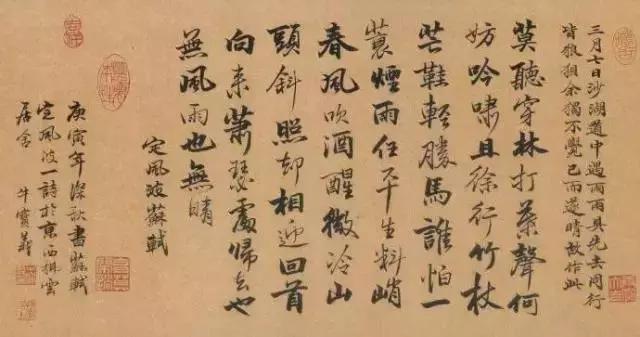 三月七日沙湖道中遇雨雨具先去同行
皆狼狽余獨不覺已而遂晴故作此
莫聽穿林打葉聲何
妨吟嘯且徐行竹杖
芒鞋輕勝馬誰怕一
蓑煙雨任平生料峭
春風吹酒醒微冷山
頭斜照却相迎回首
向来蕭瑟處歸去也
無風雨也無晴
定風波蘇軾
庚寅年深秋書蘇軾
定風波一詩於京西雲
居舍 牛寶